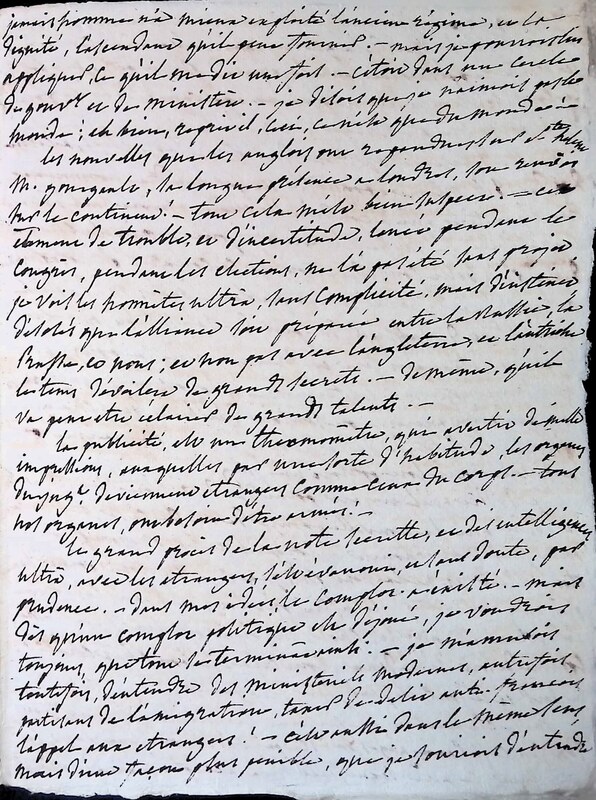 jamais homme n'a mieux exploité l'ancien régime, et la
dignité, l'ascendant qu'il peut fournir. — mais je pourrois lui
appliquer, ce qu'il m'a dit une fois. — c'étoit dans un cercle
de gouvt et de ministère. — je disois que je n'aimois pas le
monde ; eh bien, reprit-il, ceci, ce n'est que du monde
les nouvelles que les anglois ont répandues sur Ste helene
M. gourgault, sa longue présence a londres, son renvoi
sur le continent ! — tout cela m'est bien suspect. — cet
de trouble, et d'incertitude, lancé pendant le
congrès, pendant les elections, ne l'a pas été sans projet,
je vois les hommes ultra, sans complicité, mais d'instinct
désolés que l'alliance soit préparée entre la Russie, la
Prusse, et nous ; et non pas avec l'angleterre, et l'autriche
le tems dévoilera de grands secrets. — de même, qu'il
va peut etre eclairer de grands talents. —
la publicité, est un thermomètre, qui avertit de mille
impressions, auxquelles par une sorte d'habitude, les organes
du jugt deviennent etrangers comme ceux du corps. — tous
nos organes, ont besoin d'être armés. —
le grand procès de la note secrette, et des intelligences
ultra, avec les etrangers, s'est évanoui, et sans doute, par
prudence. — dans mes idées, le complot a éxisté. — mais
dès qu'un complot politique est déjoué, je voudrois
toujours, que tout se terminat — je m'amusois
toutefois, d'entendre des ministeriels modernes, autrefois
partisans de l'émigration, taxer de delit anti-francois
l'appel aux etrangers ! — c'est aussi dans le même sens,
mais d'une façon plus penible, que je souriois d'entendre